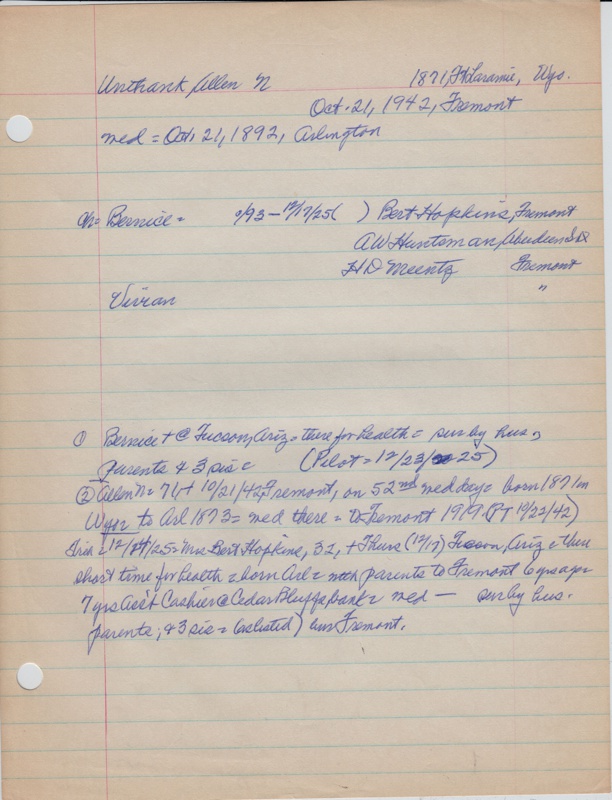 Unthank, Allen N 1871, Ft Laramie, Wyo.
Oct. 21, 1942, Fremont
med = Oct. 21, 1892, Arlington
ch = Bernice = 9/93 - 12/17/25 ( ) Bert Hopkins, Fremont
AW Huntsman, Aberdeen S.D.
H D Meentz Fremont
Vivian "
① Bernice + @ Tucson, Ariz = there for health = sur by hus,
parents & 3 sis = (Pilot = 12/23/25)
② Allen N = 71, + 10/21/42, Fremont, on 52nd wed day = born 1871 in
Wyo = to Arl 1873 = med there = to Fremont 1919 (PT 10/22/42)
12/24/25 = Mrs Bert Hopkins, 32, + Thurs (12/17) Tucson, Ariz = there
short time for health = born Arl = with parents to Fremont 6 yrs ago =
7 yrs Ass't Cashier @ Cedar Bluffs bank = med — sur by hus.
parents, & 3 sis = (as listed) bur Fremont.